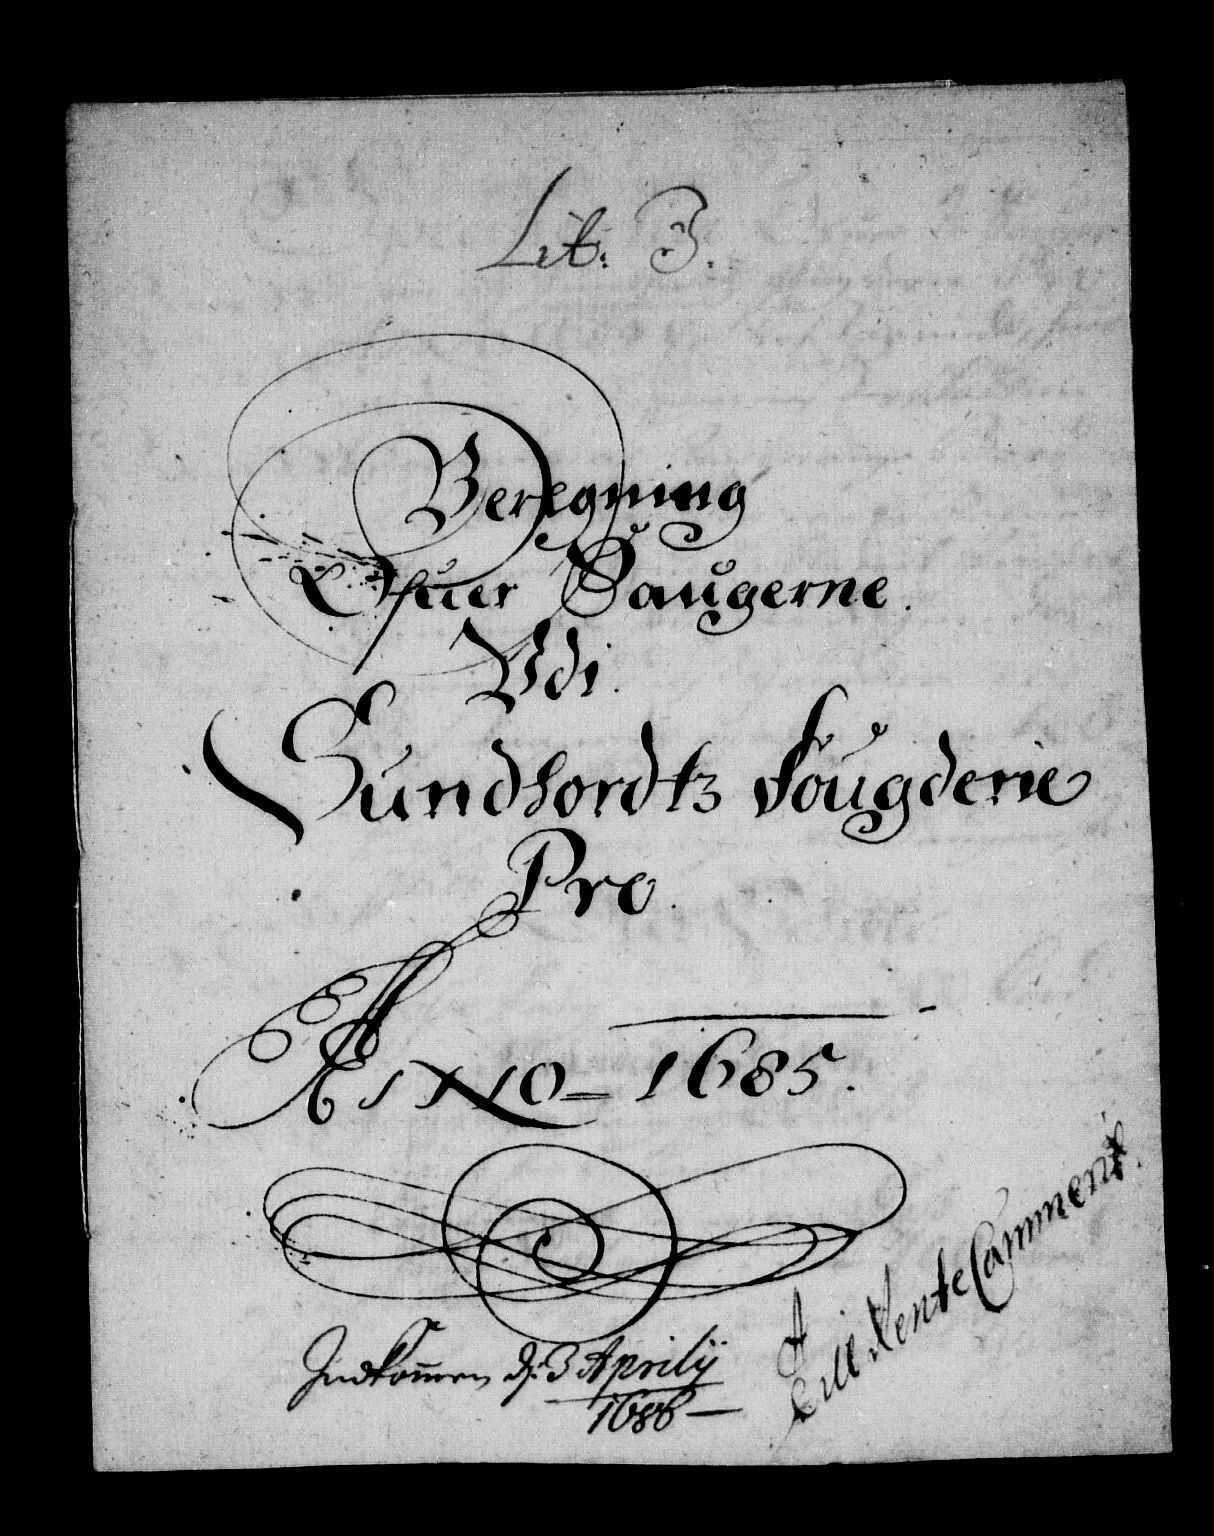 Lit: B.
Beregning
Ofuer Saugerne.
Udi.
Sundhordtz fougderie
Pro.
ANNO= 1685.
Indkommen d: 3 Aprilij
1686 —
Till Rente Cammeret.